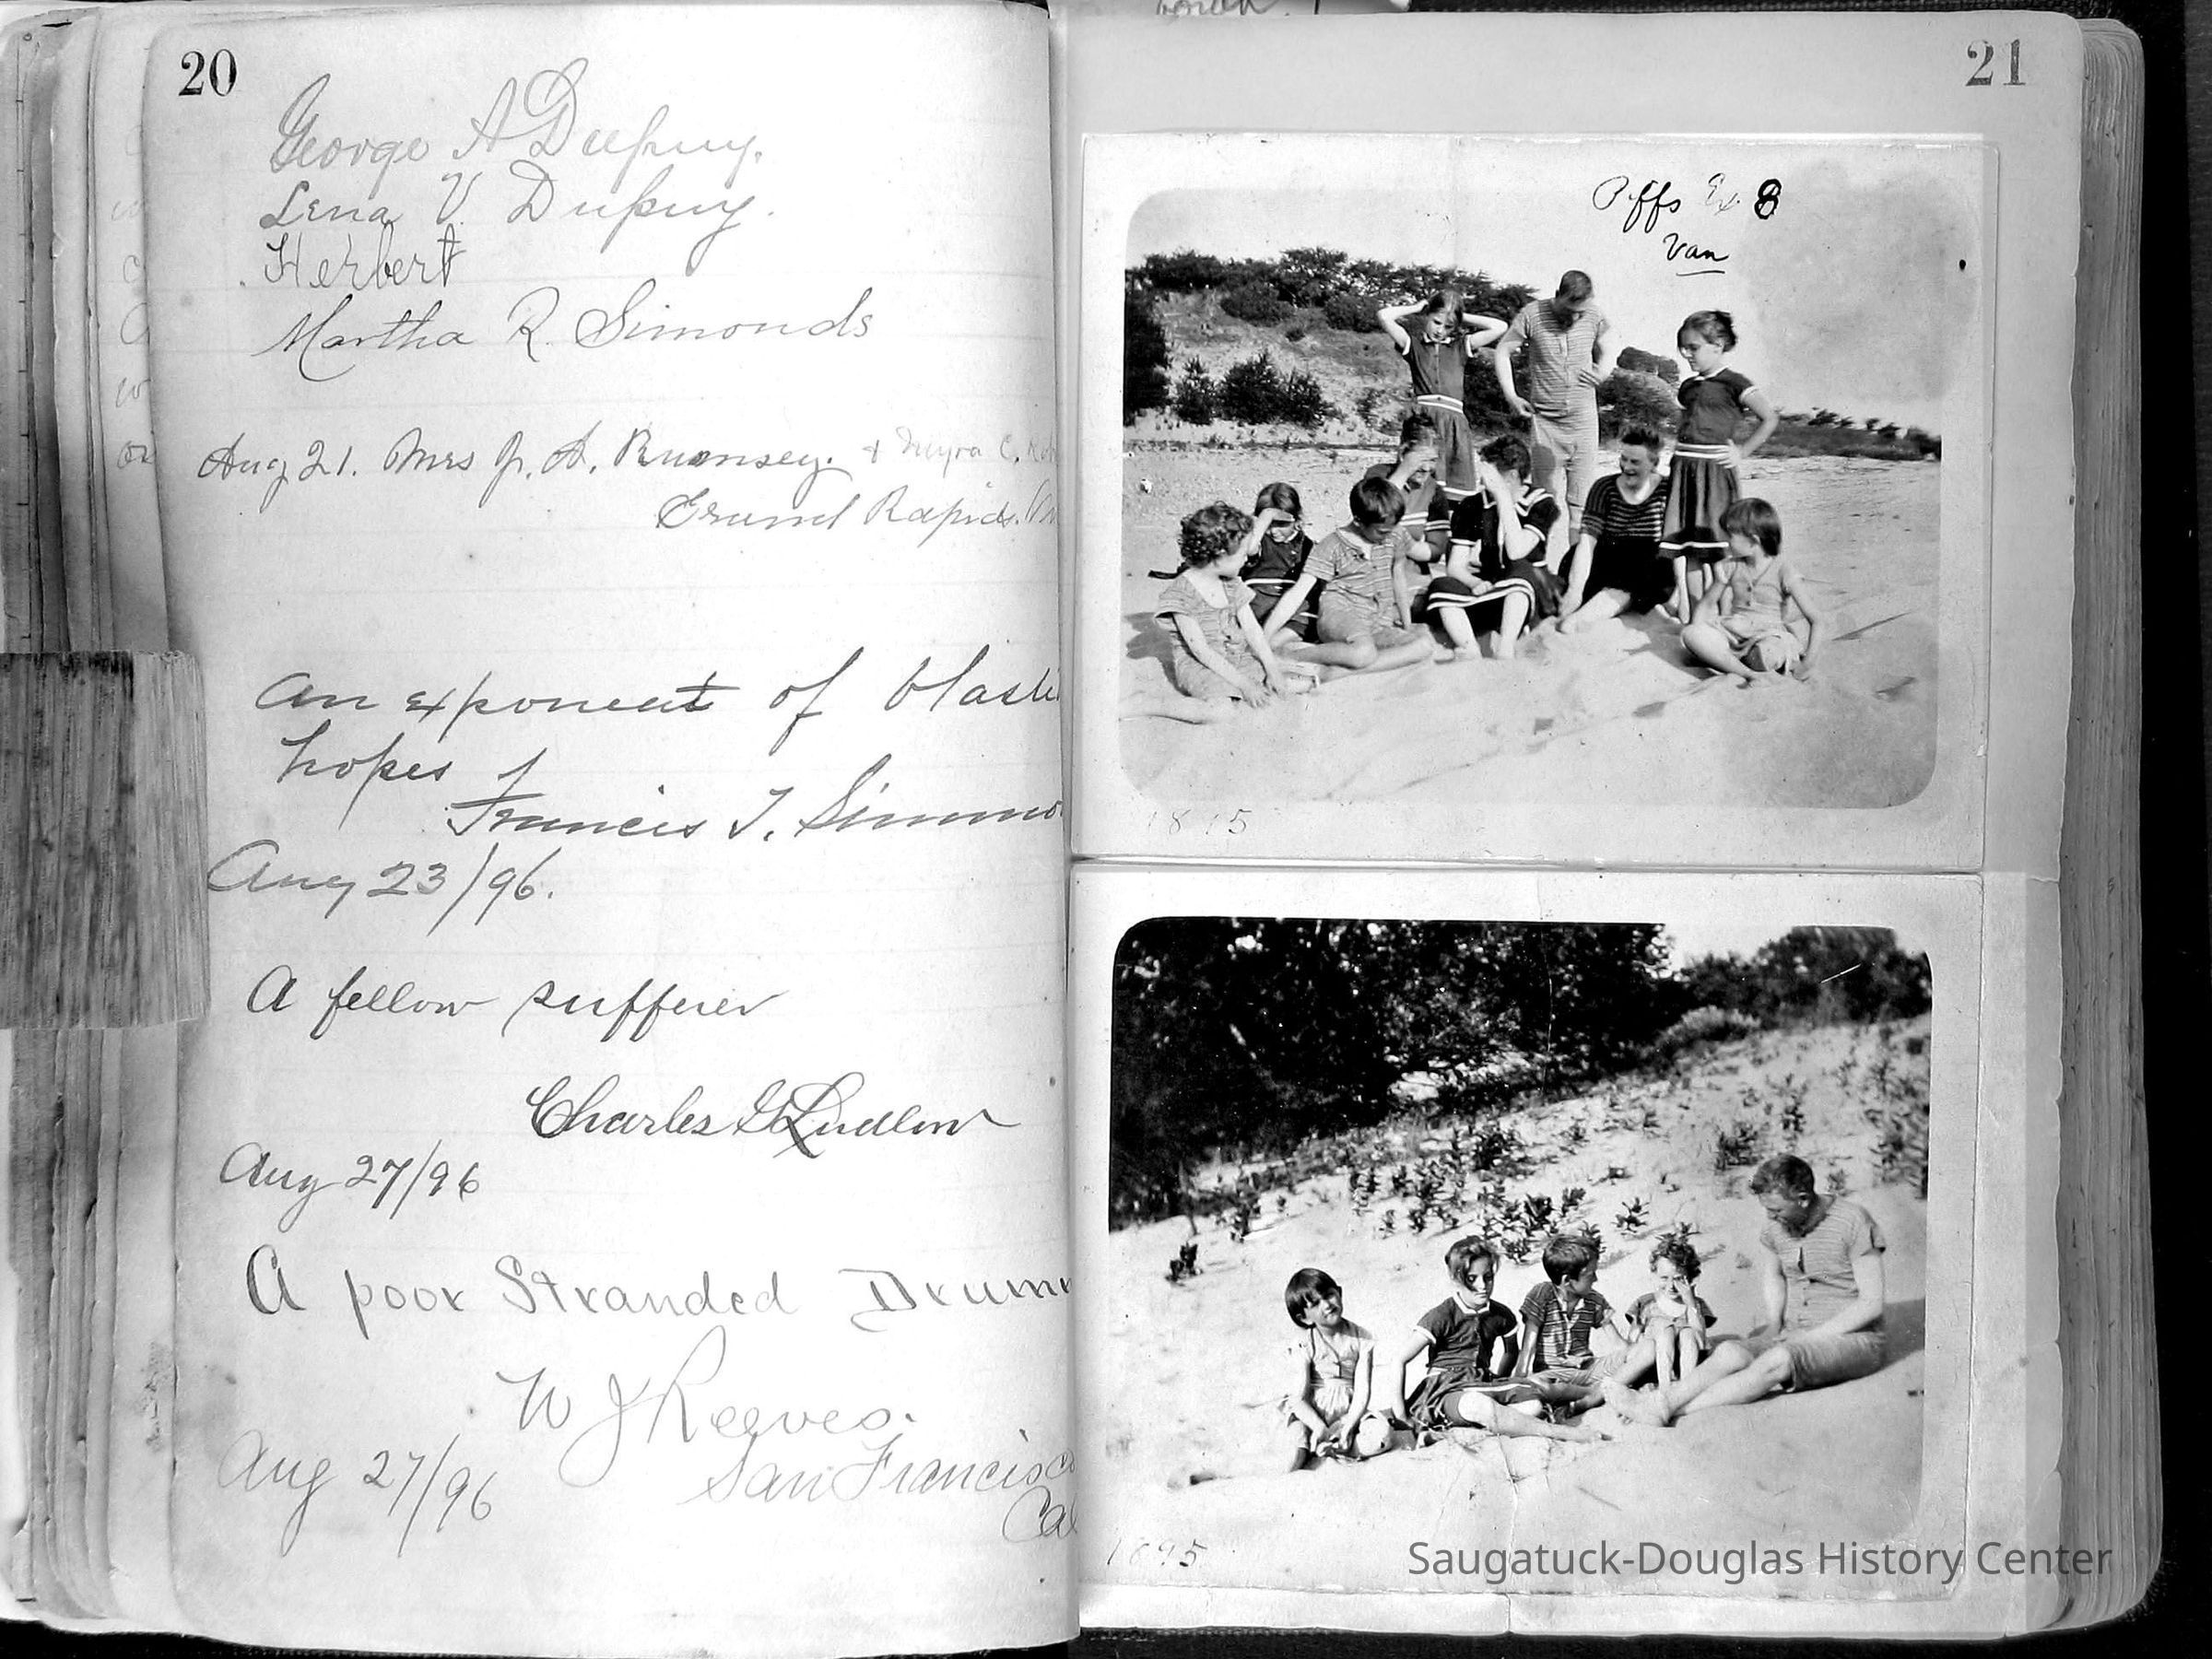 20
George A Dupuy.
Lena V. Dupuy.
Herbert
Martha R. Simonds
Aug 21. Mrs J. A. Rumsey. & Myra C.
Grand Rapids.
An exponent of
hopes
Francis T.
Aug 23/96.
A fellow sufferer
Charles G Ludlow
Aug 27/96
A poor Stranded
W J Reeves.
Aug 27/96
San Francisco
Cal
21
Piffs Ex 8
Van
1895
Saugatuck-Douglas History Center